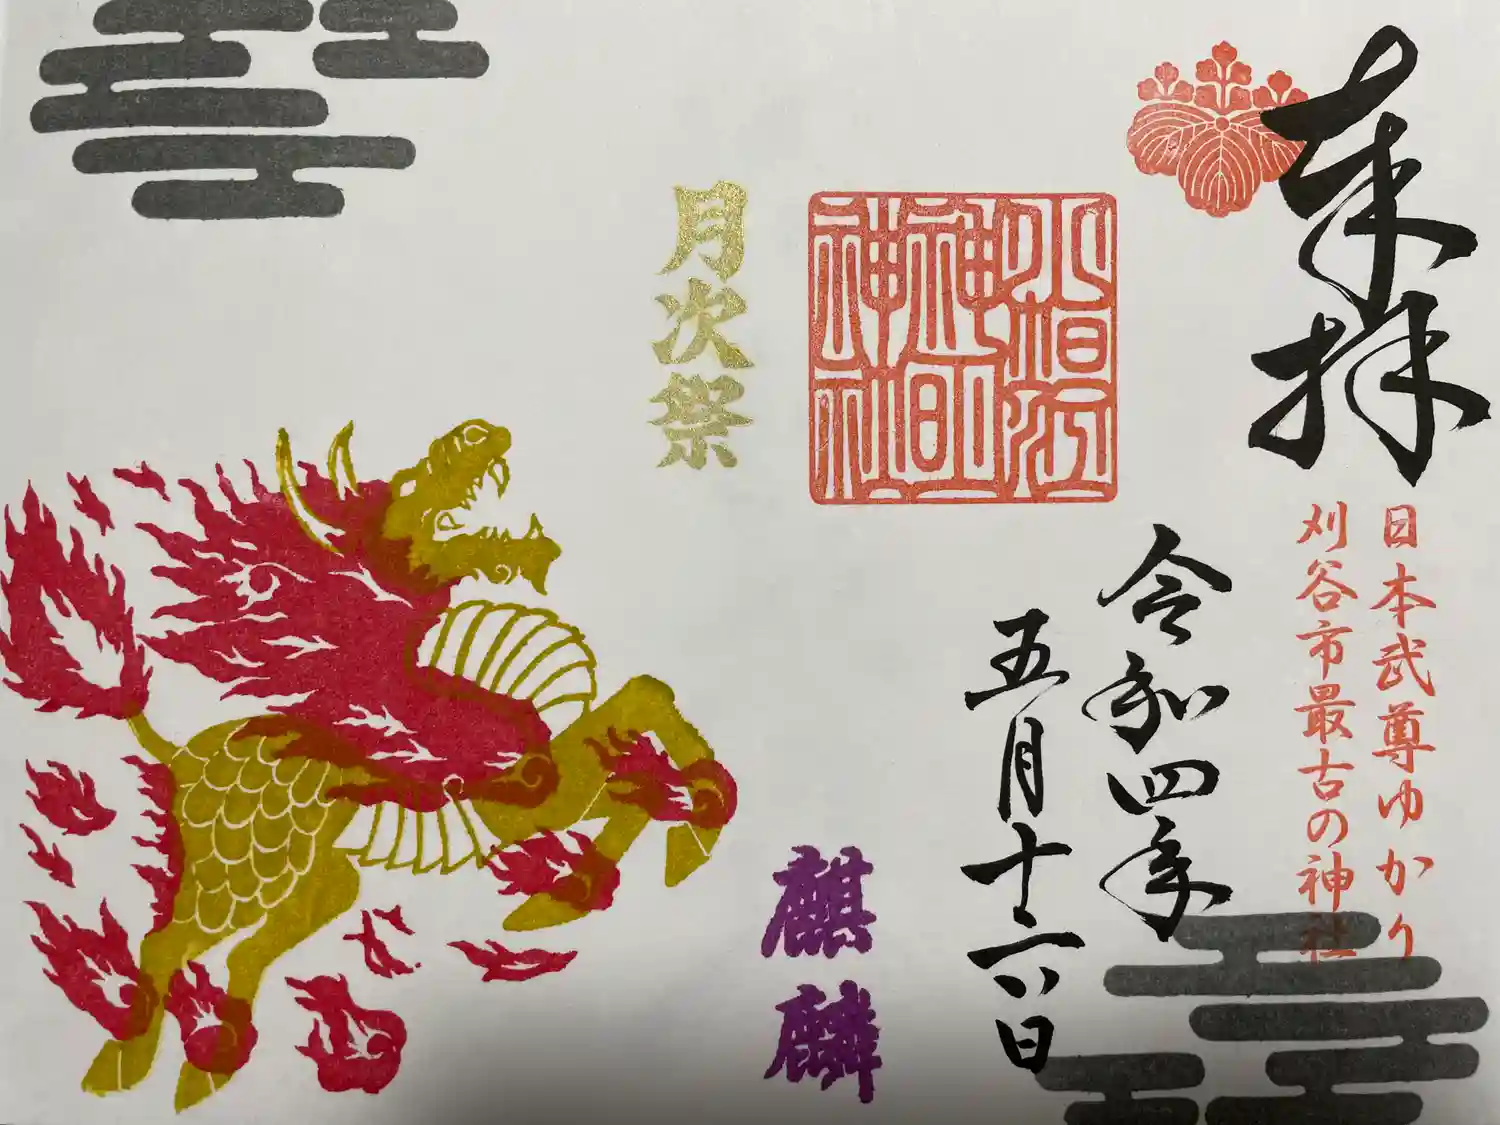 奉拝
日本武尊ゆかり
刈谷市最古の神社
小垣江
神明
神社
令和四年
五月十六日
月次祭
麒麟